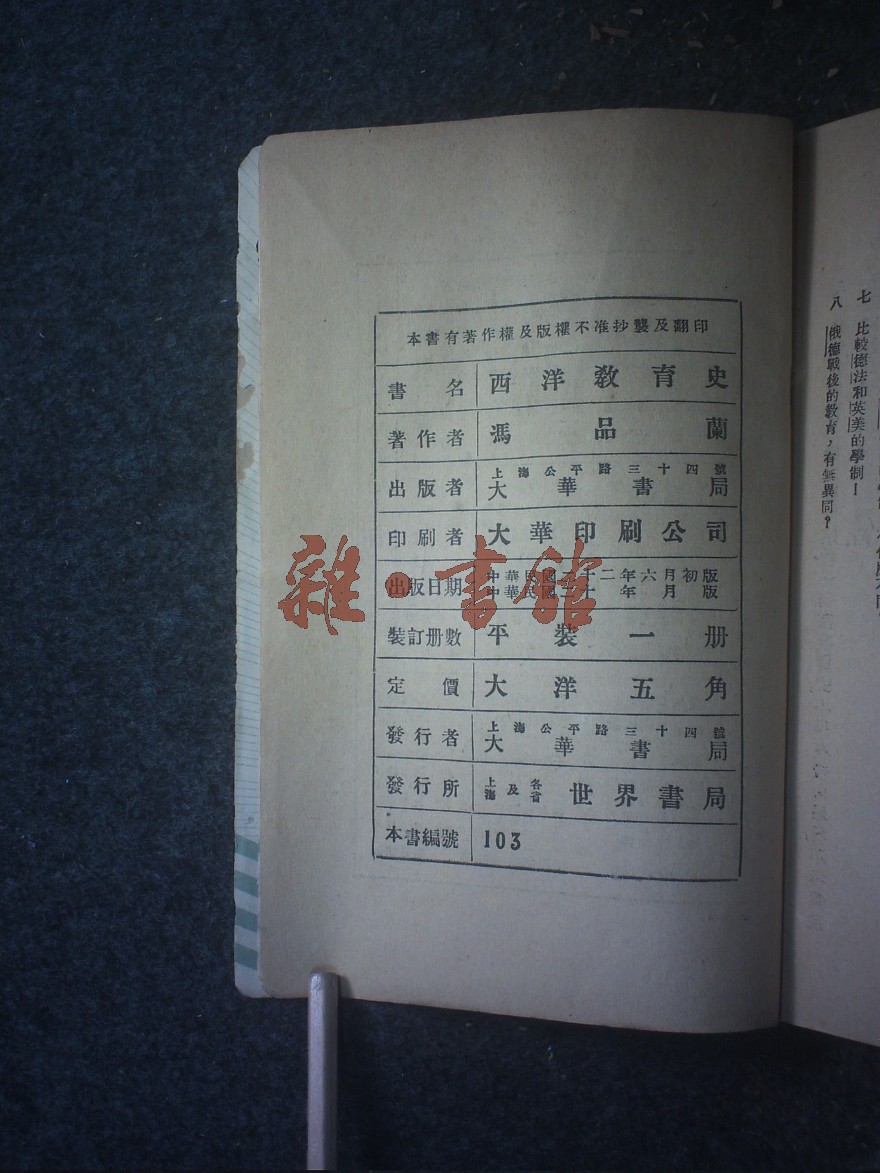 七 比較德法和英美的學制！
八 俄德戰後的教育，有無異同？
本書有著作權及版權不准抄襲及翻印
書名 西洋教育史
著作者 馮品蘭
出版者 上海公平路三十四號
大華書局
印刷者 大華印刷公司
出版日期 中華民國二十二年六月初版
中華民國二十 年 月 版
裝訂册數 平裝一册
定價 大洋五角
發行者 上海公平路三十四號
大華書局
發行所 上海及各省 世界書局
本書編號 103
雜·書館